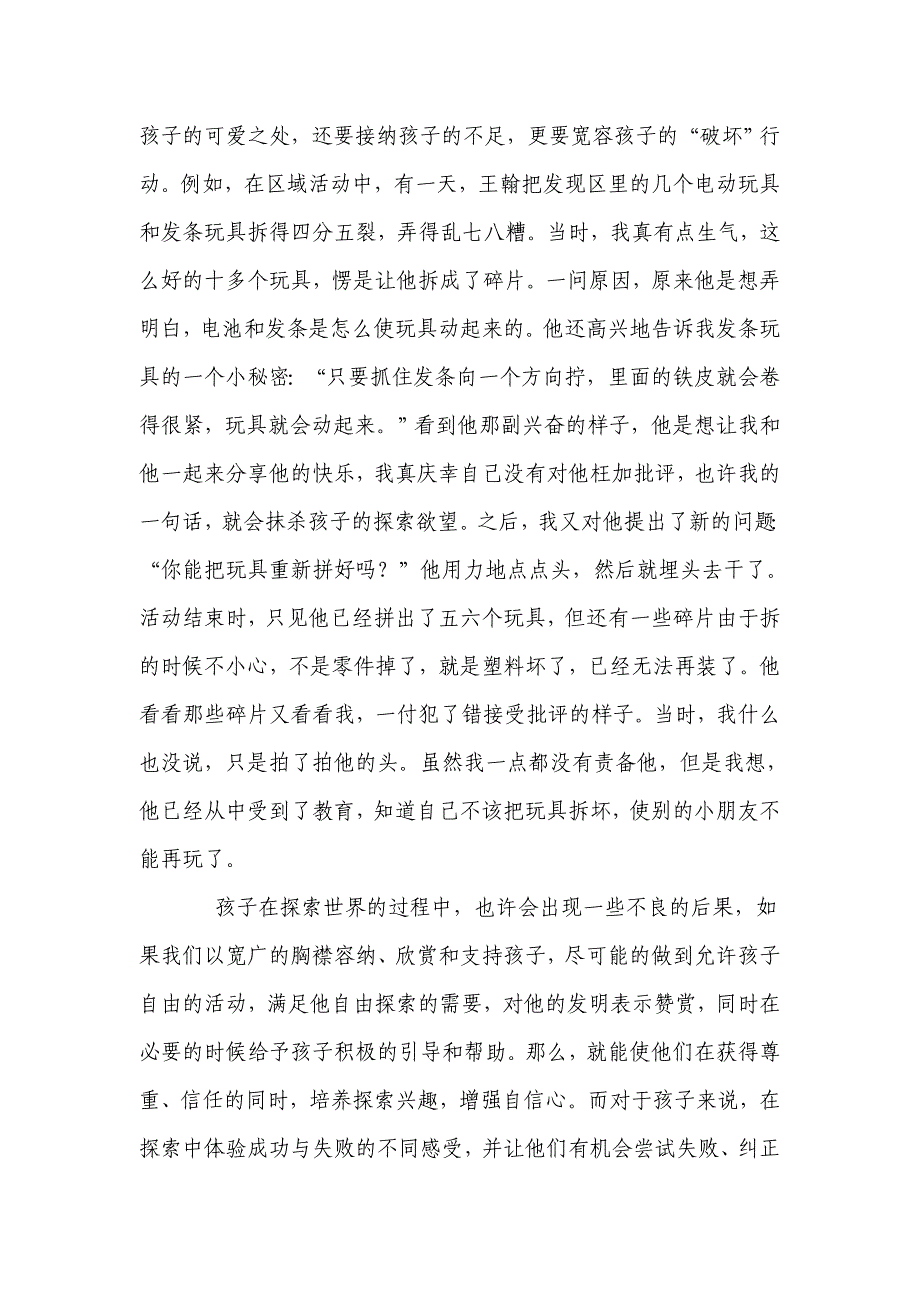 孩子的可爱之处，还要接纳孩子的不足，更要宽容孩子的“破坏”行
动。例如，在区域活动中，有一天，王翰把发现区里的几个电动玩具
和发条玩具拆得四分五裂，弄得乱七八糟。当时，我真有点生气，这
么好的十多个玩具，愣是让他拆成了碎片。一问原因，原来他是想弄
明白，电池和发条是怎么使玩具动起来的。他还高兴地告诉我发条玩
具的一个小秘密：“只要抓住发条向一个方向拧，里面的铁皮就会卷
得很紧，玩具就会动起来。”看到他那副兴奋的样子，他是想让我和
他一起来分享他的快乐，我真庆幸自己没有对他枉加批评，也许我的
一句话，就会抹杀孩子的探索欲望。之后，我又对他提出了新的问题：
“你能把玩具重新拼好吗？”他用力地点点头，然后就埋头去干了。
活动结束时，只见他已经拼出了五六个玩具，但还有一些碎片由于拆
的时候不小心，不是零件掉了，就是塑料坏了，已经无法再装了。他
看看那些碎片又看看我，一付犯了错接受批评的样子。当时，我什么
也没说，只是拍了拍他的头。虽然我一点都没有责备他，但是我想，
他已经从中受到了教育，知道自己不该把玩具拆坏，使别的小朋友不
能再玩了。
孩子在探索世界的过程中，也许会出现一些不良的后果，如
果我们以宽广的胸襟容纳、欣赏和支持孩子，尽可能的做到允许孩子
自由的活动，满足他自由探索的需要，对他的发明表示赞赏，同时在
必要的时候给予孩子积极的引导和帮助。那么，就能使他们在获得尊
重、信任的同时，培养探索兴趣，增强自信心。而对于孩子来说，在
探索中体验成功与失败的不同感受，并让他们有机会尝试失败、纠正